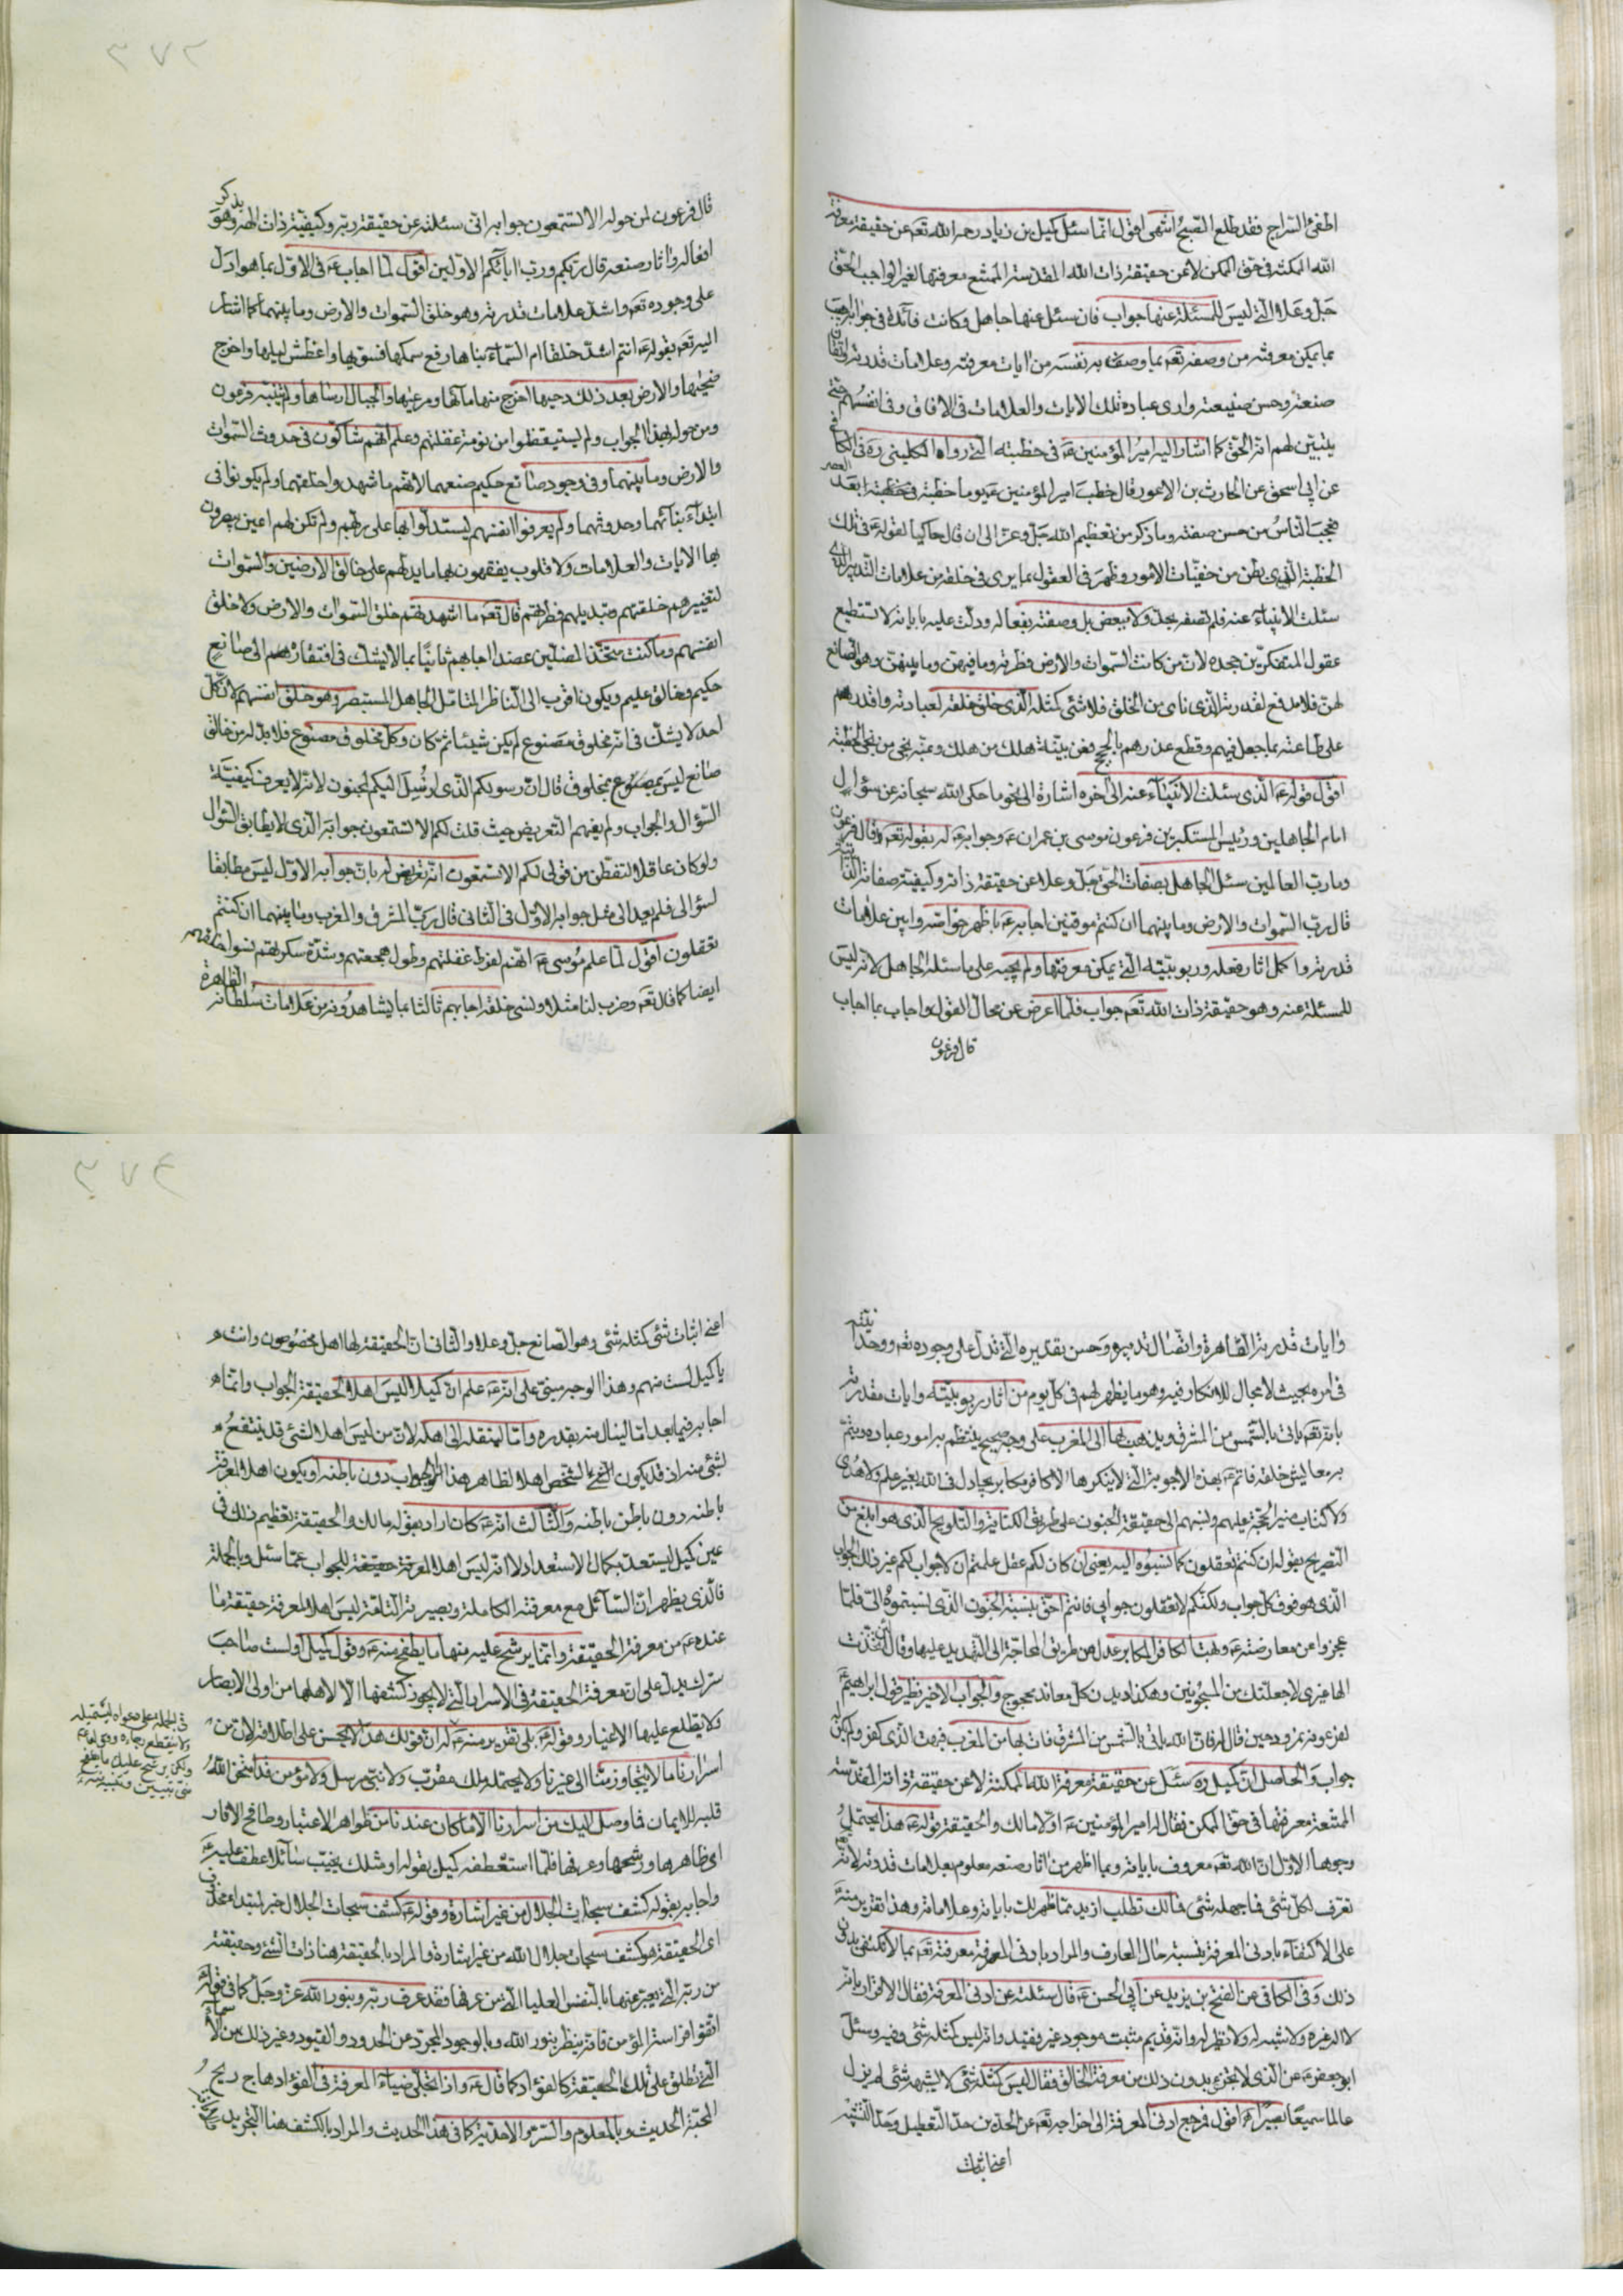 اطفئ السراج فقد طلع الصبح انتهى اقول انما سئل كميل بن زياد رحمه الله تعه عن حقيقة معرفة
الله الممكنة فى حق الممكن لا عن حقيقة ذات الله المقدسة الممتنع معرفتها لغير الواجب الحق
جل وعلا التى ليس للمسئلة عنها جواب فان سئل عنها جاهل وكانت فائدة فى جوابه يجب
بما يمكن معرفته من وصفه تعه بما وصف به نفسه من ايات معرفته وعلامات قدرته واتقان
صنعته وحسن صنيعته وارى عباده تلك الايات والعلامات فى الافاق وفى انفسهم حتى
يتبين لهم انه الحق كما اشار اليه امير المؤمنين عه فى خطبته التى رواه الكلينى ره فى الكافى
عن ابى اسحق عن الحارث بن الاعور قال خطب امير المؤمنين عه يوما خطبة بعد العصر
فعجب الناس من حسن صفته وما ذكر من تعظيم الله جل وعز الى ان قال حاكيا لقوله عه فى تلك
الخطبة الذى بطن من خفيات الامور وظهر فى العقول بما يرى فى خلقه من علامات التدبير الذى
سئلت الانبياء عنه فلم تصفه بحد ولا ببعض بل وصفته بفعاله ودلت عليه باياته لا تستطيع
عقول المتفكرين جحده لان من كانت السموات والارض فطرته وما فيهن وما بينهن وهو الصانع
لهن فلا مدفع لقدرته الذى نأى من الخلق فلا شئ كمثله الذى خلق خلقه لعبادته واقدرهم
على طاعته بما جعل فيهم وقطع عذرهم بالحجج فعن بينة هلك من هلك وعنه نجى من نجى الخطبة
اقول قوله عه الذى سئلت الانبياء عنه الى اخره اشارة الى نحو ما حكى الله سبحانه عن سؤال
امام الجاهلين ورئيس المستكبرين فرعون موسى بن عمران عه وجوابه عه له بقوله تعه قال فرعون
وما رب العالمين سئل الجاهل بصفات الحق جل وعلا عن حقيقة ذاته وكيفية صفاته الذاتية
قال رب السموات والارض وما بينهما ان كنتم موقنين اجابه عه باظهر خواصه وابين علامات
قدرته واكمل اثار فعله وربوبيته التى يمكن معرفتها ولم يجبه على ما سئله الجاهل لانه ليس
للمسئلة عنه وهو حقيقة ذات الله تعه جواب فلما اعرض عن محال القول واجاب بما اجاب
قال فرعون
٣٧٢
قال فرعون لمن حوله الا تستمعون جوابه انى سئلته عن حقيقة ربه وكيفية ذات الهه وهو يذكر
افعاله واثار صنعه قال ربكم ورب ابائكم الاولين اقول لما اجاب عه فى الاول بما هو ادل
على وجوده تعه واشد علامات قدرته وهو خلق السموات والارض وما بينهما كما اشار
اليه تعه بقوله ءانتم اشد خلقا ام السماء بناها رفع سمكها فسويها واغطش ليلها واخرج
ضحيها والارض بعد ذلك دحيها اخرج منها مآئها ومرعيها والجبال ارساها ولم يتنبه فرعون
ومن حوله لهذا الجواب ولم يستيقظوا من نومة غفلتهم وعلم انهم شاكون فى حدوث السموات
والارض وما بينهما وفى وجود صانع حكيم صنعهما لانهم ما شهدوا خلقهما ولم يكونوا فى
ابتداء بنآئهما وحدوثهما ولم يعرفوا انفسهم ليستدلوا بها على ربهم ولم تكن لهم اعين يبصرون
بها الايات والعلامات ولا قلوب يفقهون بها ما يدلهم على خالق الارضين والسموات
لتغييرهم خلقتهم وتبديلهم فطرتهم قال تعه ما اشهدتهم خلق السموات والارض ولا خلق
انفسهم وما كنت متخذ المضلين عضدا اجابهم ثانيا بما لا يشك فى افتقارهم الى صانع
حكيم وخالق عليم ويكون اقرب الى الناظر المتامل الجاهل المستبصر وهو خلق انفسهم لان كل
احد لا يشك فى انه مخلوق مصنوع لم يكن شيئا ثم كان وكل مخلوق مصنوع فلا بد له من خالق
صانع ليس بمصنوع مخلوق قال ان رسولكم الذى ارسل اليكم لمجنون لانه لا يعرف كيفية
السؤال والجواب ولم يفهم التعريض حيث قلت لكم الا تستمعون جوابه الذى لا يطابق السؤال
ولو كان عاقلا لتفطن من قولى لكم الا تستمعون انه تعريض له بان جوابه الاول ليس مطابقا
لسؤالى فلم يعد الى مثل جوابه الاول فى الثانى قال رب المشرق والمغرب وما بينهما ان كنتم
تعقلون اقول لما علم موسى عه انهم لفرط غفلتهم وطول هجعتهم وشدة سكرتهم نسوا خلقهم
ايضا كما قال تعه وضرب لنا مثلا ونسى خلقه اجابهم ثالثا بما يشاهدونه من علامات سلطانه الظاهرة
وايات قدرته الظاهرة واتصال تدبيره وحسن تقديره التى تدل على وجوده تعه ووحدانيته
فى امره بحيث لا مجال للانكار فيه وهو ما يظهر لهم فى كل يوم من اثار ربوبيته وايات مقدرته
بانه تعه ياتى بالشمس من المشرق ويذهب بها الى المغرب على وجه صحيح ينتظم به امور عباده ويتم
به معايش خلقه فاتم عه بهذه الاجوبة التى لا ينكرها الا كافر مكابر يجادل فى الله بغير علم ولا هدى
ولا كتاب منير الحجة عليهم ونسبهم الى حقيقة الجنون على طريق الكناية والتلويح الذى هو ابلغ من
التصريح بقوله ان كنتم تعقلون كما نسبوه اليه يعنى ان كان لكم عقل علمتم ان لا جواب لكم غير ذلك الجواب
الذى هو فوق كل جواب ولكنكم لا تعقلون جوابى فانتم احق بنسبة الجنون الذى نسبتموه الى فلما
عجزوا عن معارضته عه وبهت الكافر المكابر عدل عن طريق المحاجة الى التهديد عليها وقال لئن اتخذت
الها غيرى لاجعلنك من المسجونين وهكذا ديدن كل معاند محجوج والجواب الاخير نظير قول ابراهيم عه
لفرعونه نمرود حين قال له فان الله ياتى بالشمس من المشرق فات بها من المغرب فبهت الذى كفر ولم يكن له
جواب والحاصل ان كميل ره سئل عن حقيقة معرفة الله الممكنة لا عن حقيقة ذاته المقدسة
الممتنعة معرفتها فى حق الممكن فقال له امير المؤمنين عه اولا مالك والحقيقة قوله عه هذا يحتمل
وجوها الاول ان الله تعه معروف باياته وبما اظهر من اثار صنعه معلوم بعلامات قدرته لانه
تعرف لكل شئ فما جهله شئ فمالك تطلب ازيد مما ظهر لك باياته وعلاماته وهذا تقرير منه عه
على الاكتفاء بادنى المعرفة بنسبة حال العارف والمراد بادنى المعرفة معرفته تعه بما لا يكتفى بدون
ذلك وفى الكافى عن الفتح بن يزيد عن ابى الحسن عه قال سئلته عن ادنى المعرفة فقال الاقرار بانه
لا اله غيره ولا شبه له ولا نظير له وانه قديم مثبت موجود غير فقيد وانه ليس كمثله شئ وفيه وسئل
ابو جعفر عه عن الذى لا يجتزئ بدون ذلك من معرفة الخالق فقال ليس كمثله شئ لا يشبهه شئ لم يزل
عالما سميعا بصيرا اقول مرجع ادنى المعرفة الى اخراجه تعه عن الحدين حد التعطيل وحد التشبيه
اعنى اثبات
٣٧٤
اعنى اثبات شئ كمثله شئ وهو الصانع جل وعلا والثانى ان الحقيقة لها اهل مخصوصون وانت
يا كميل لست منهم وهذا الوجه مبنى على انه عه علم ان كميلا ليس اهلا لحقيقة الجواب وانما
اجابه فيما بعد اما لينال منه بقدره واما لينقله الى اهله لان من ليس اهلا لشئ قد ينتفع
بشئ منه اذ قد يكون الشخص اهلا لظاهر هذا الجواب دون باطنه او يكون اهلا لمعرفة
باطنه دون باطن باطنه والثالث انه عه كان اراد بقوله مالك والحقيقة تعظيم ذلك فى
عين كميل ليستعد بكمال الاستعداد لا انه ليس اهلا لمعرفة حقيقة للجواب عما سئل وبالجملة
فالذى يظهر ان السآئل مع معرفته الكاملة وبصيرته النافذة ليس اهلا لمعرفة حقيقة ما
عنده عه من معرفة الحقيقة وانما يرشح عليه منها ما يطفح منه عه وقول كميل اولست صاحب
سرك يدل على ان معرفة الحقيقة من الاسرار التى لا يجوز كشفها الا لاهلها من اولى الابصار
ولا يطلع عليها الاغيار وقوله عه بلى تقرير منه عه له ان قولك هذا لا يحسن على اطلاقه لان من
اسرارنا ما لا يتجاوز منا الى غيرنا ولا يحتمله ملك مقرب ولا نبى مرسل ولا مؤمن قد امتحن الله
قلبه للايمان فما وصل اليك من اسرارنا الا ما كان عندنا من ظواهر الاعتبار وطافح الاثار
اى ظاهرها ورشحها وعرقها فلما استعطفه كميل بقوله او مثلك يخيب سائلا عطف عليه عه
واجابه بقوله كشف سبحات الجلال من غير اشارة وقوله عه كشف سبحات الجلال خبر لمبتداء محذوف
اى الحقيقة هو كشف سبحات جلال الله من غير اشارة والمراد بالحقيقة هنا ذات الشئ وحقيقته
من ربه التى يعبر عنها بالنفس العليا التى من عرفها فقد عرف ربه وبنور الله عز وجل كما فى قوله عه
اتقوا فراسة المؤمن فانه ينظر بنور الله وبالوجود المجرد عن الحدود والقيود وغير ذلك من الاسماء
التى تطلق على تلك الحقيقة كالفؤاد كما قال عه واذا تجلى ضياء المعرفة فى الفؤاد هاج ريح
المحبة الحديث وبالمعلوم والسر والاحدية كما فى هذا الحديث والمراد بالكشف هنا التجريد